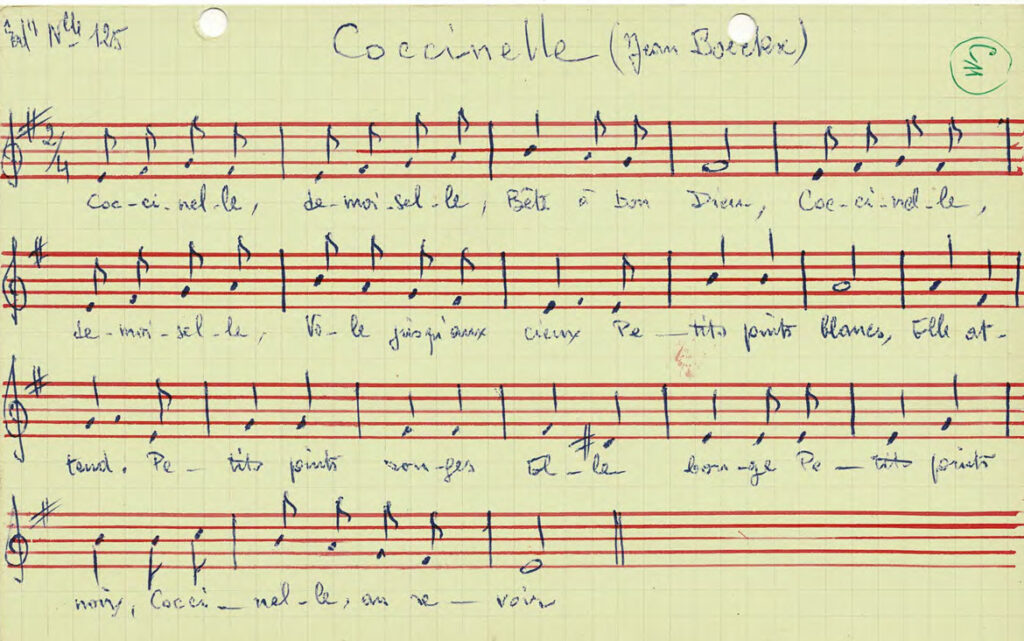 Nlle 125
Coccinelle (Jean Boeckx)
CM
2/4
Coc-ci-nel-le, de-moi-sel-le, Bête à bon Dieu, Coc-ci-nel-le,
de-moi-sel-le, Vo-le jusqu'aux cieux Pe-tits points blancs, Elle at-
tend. Pe-tits points rou-ges El-le bou-ge Pe-tits points
noirs, Cocci-nel-le, au re-voir